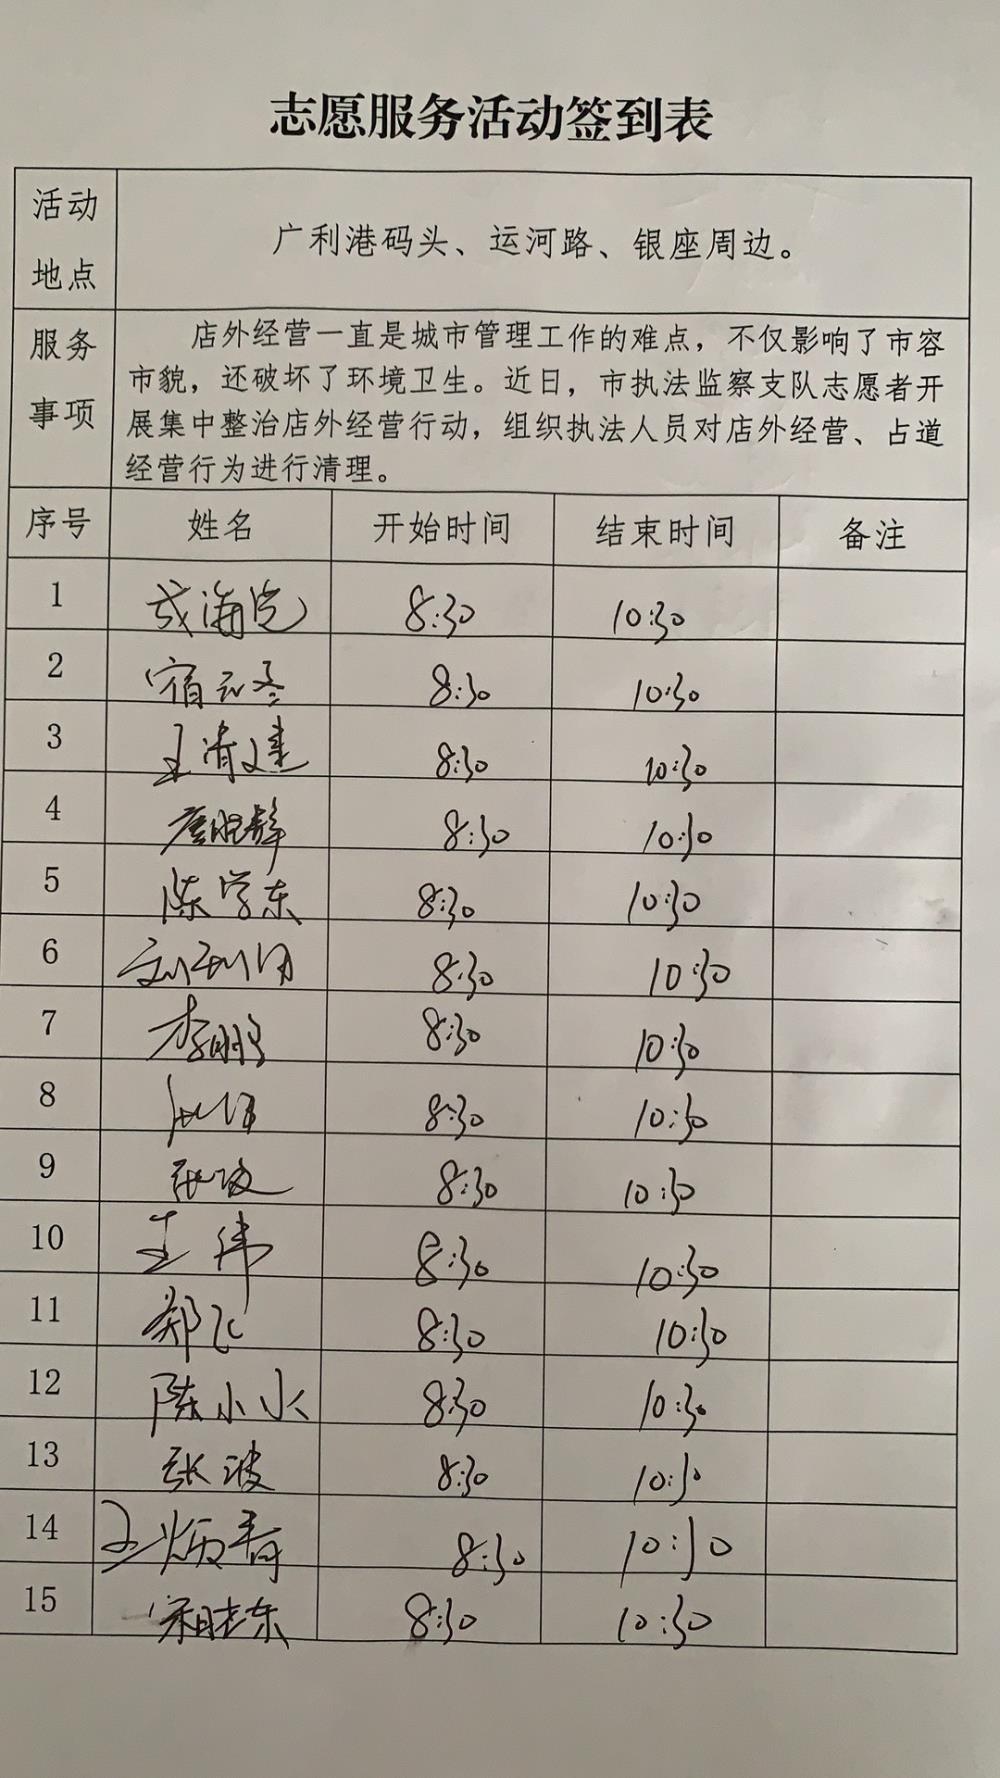 志愿服务活动签到表
活动地点
广利港码头、运河路、银座周边。
服务事项
店外经营一直是城市管理工作的难点，不仅影响了市容
市貌，还破坏了环境卫生。近日，市执法监察支队志愿者开
展集中整治店外经营行动，组织执法人员对店外经营、占道
经营行为进行清理。
序号 姓名 开始时间 结束时间 备注
1 8:30 10:30
2 8:30 10:30
3 王清建 8:30 10:30
4 8:30 10:30
5 陈学东 8:30 10:30
6 8:30 10:30
7 李鹏 8:30 10:30
8 8:30 10:30
9 8:30 10:30
10 王伟 8:30 10:30
11 郑飞 8:30 10:30
12 陈小水 8:30 10:30
13 张波 8:30 10:30
14 王炳春 8:30 10:30
15 宋胜东 8:30 10:30